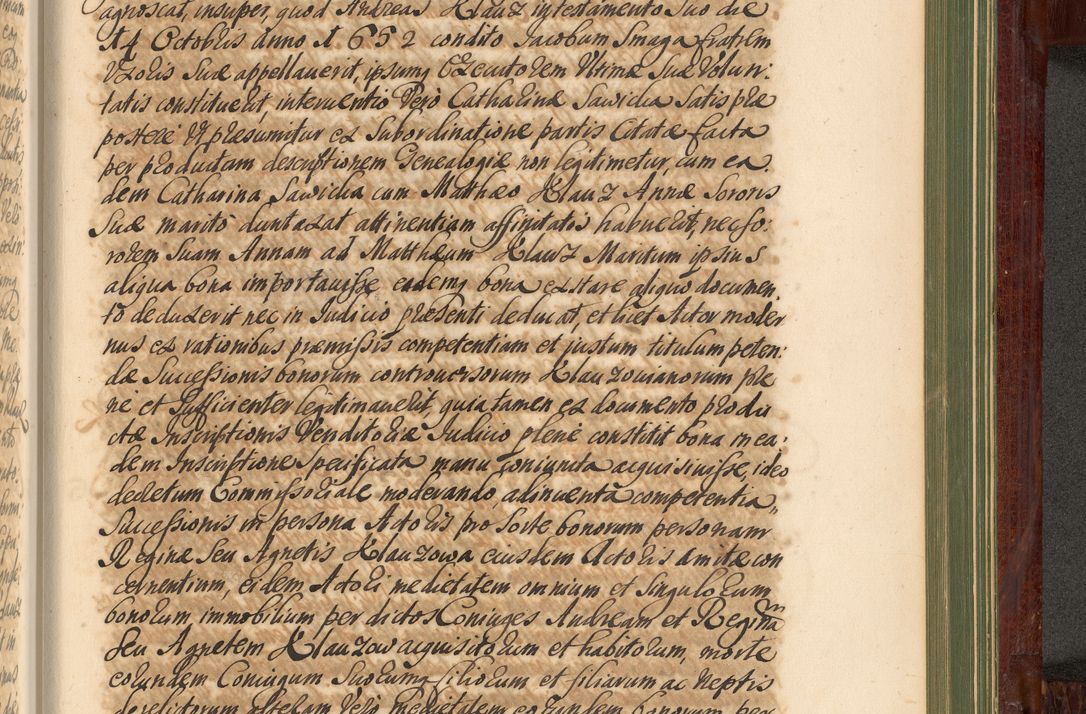 agnoscat, insuper, quod Andreas Klauz in testamento suo die
14 Octobris Anno 1652 condito Jacobum Smaga fratrem
Uxoris Suæ appellaverit, ipsumq Executorem Ultimæ Suæ Volun:
tatis constituerit, interventio Verò Catharinæ Sawicka Satis præ
postere ut præsumitur ex Subordinatione partis Citatæ facta
per productam descriptionem Genealogiæ non legitimetur, cum ea
dem Catharina Sawicka cum Matthæo Klauz Annæ Sororis
Suæ maritò duntaxat attinentiam affinitatis habuerit, nec so:
rorem Suam Annam ad Matthæum Klauz Maritum ipsius
aliqua bona importavisse eademq bona exstare aliquo documen,
to deduxerit nec in Judicio præsenti deducat, et licet Actor moder
nus ex rationibus præmissis competentiam et justum titulum peten:
dæ Successionis bonorum controversorum Klauzowianorum ple
nè et Sufficienter legitimaverit, quia tamen ex documento produ
ctæ Inscriptionis Venditoriæ Judicio plenè constitit bona in ea:
dem Inscriptione Specificata manu coniuncta acquisivisse, ideo
decretum Commissoriale moderando, adinventa competentia
Successionis in persona Actoris pro Sorte bonorum personam
Reginæ Seu Agnetis Klauzowa eiusdem Actoris amitæ con
cernentium, eidem Actori medietatem omnium et Singulorum
bonorum immobilium per dictos Coniuges Andream et Reginam
Seu Agnetem Klauzow acquisitorum et habitorum, morte
eorundem Coniugum Suorumq filiorum et filiarum ac Neptis
derelictorum alteram Verò medietatem eorundem bonorum per